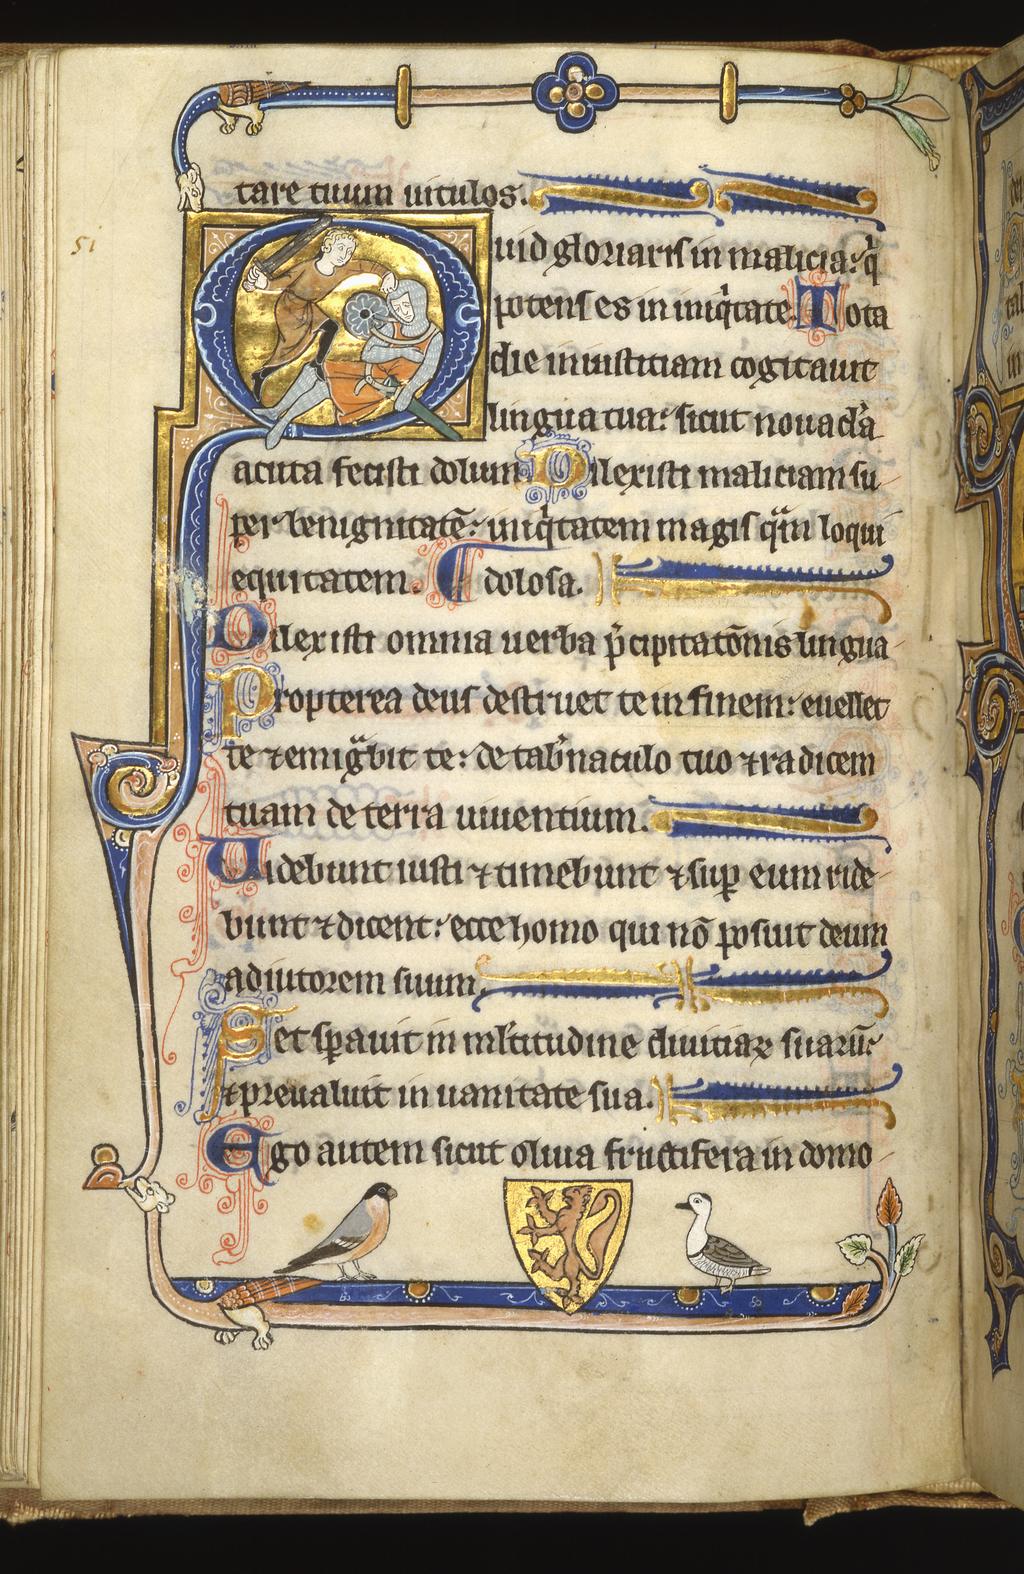 51
tare tuum uitulos.
Quid gloriaris in malicia: q̇
potens es in iniq̇tate. Tota
die iniusticiam cogitauit
lingua tua: sicut nouacl̄a
acuta fecisti dolum. Dilexisti maliciam su
per benignitatē: iniq̇tatem magis q̈m loqui
equitatem. dolosa.
Dilexisti omnia uerba p̄cipitatōnis lingua
Propterea deus destruet te in finem: euellet
te ⁊ emigͣbit te: de tab̄naculo tuo ⁊ radicem
tuam de terra uiuentium.
Uidebunt iusti ⁊ timebunt ⁊ suꝑ eum ride
bunt ⁊ dicent: ecce homo qui nō posuit deum
adiutorem suum.
Set sꝑauit in ml̄titudine diuitiaꝝ suarū:
⁊ preualuit in uanitate sua.
Ego autem sicut oliua fructifera in domo